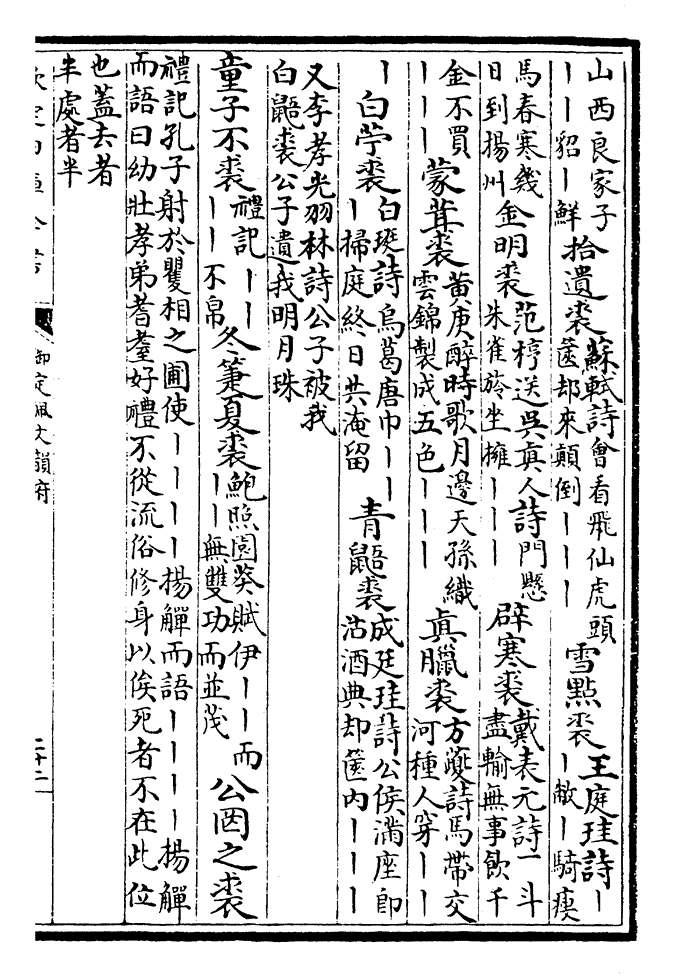 山西良家子
丨丨貂丨鮮
拾遺裘
蘇軾詩會看飛仙虎頭
篋却來顛倒丨丨丨
雪點裘
王庭珪詩丨
丨敝丨騎瘦
馬春寒幾
日到揚州
金明裘
范梈送吳真人詩門懸
朱雀斾坐擁丨丨丨
辟寒裘
戴表元詩一斗
盡輸無事飲千
金不買
丨丨丨
蒙茸裘
黄庚醉時歌月邊天孫織
雲錦製成五色丨丨丨
真臘裘
方夔詩馬帶交
河種人穿丨丨
丨
白苧裘
白珽詩烏葛唐巾丨丨
丨掃庭終日共淹留
青鼯裘
成廷珪詩公侯滿座郎
沽酒典却篋内丨丨丨
又李孝光羽林詩公子被我
白鼯裘公子遺我明月珠
童子不裘
禮記丨丨
丨丨不帛
冬箑夏裘
鮑照園葵賦伊丨丨而
丨丨無雙功而並茂
公罔之裘
禮記孔子射於矍相之圃使丨丨丨丨揚觶而語丨丨丨丨揚觶
而語曰幼壯孝弟耆耋好禮不從流俗修身以俟死者不在此位
也蓋去者
半處者半
欽定四庫全書
御定佩文韻府
二十二